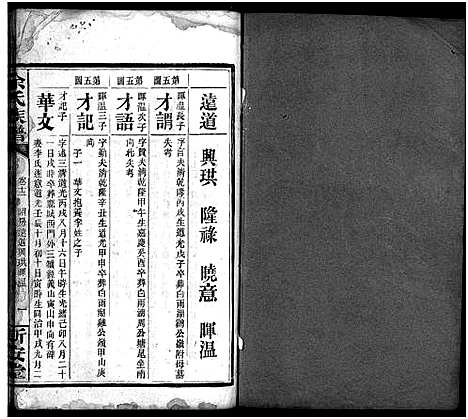 遠道 興珙 隆祿 曉意 暉温
第五圖
暉溫長子
才謂
字百夫清乾隆丙戌生道光戊子卒葬白雨湖鶴公嶺附母墓
失考
第五圖
暉溫次子
才語
字賛夫清乾隆甲午生嘉慶癸酉卒葬白雨湖周公塘尾坐南
向北失考
第五圖
暉溫三子
才記
字勤夫清乾隆辛丑生道光甲申卒葬白雨湖融公嶺甲山庚
子一 華文抱黃李姓之子
才記子
華文
字遠三清道光丙戌八月十六日午時生光緒己卯八月二十
一日戌時卒葬鹿城西門外三嶺義山寅山申向有碑
妻李氏蓬意道光壬辰十月初十日寅時生同治甲戌九月二
余氏族譜
新安堂